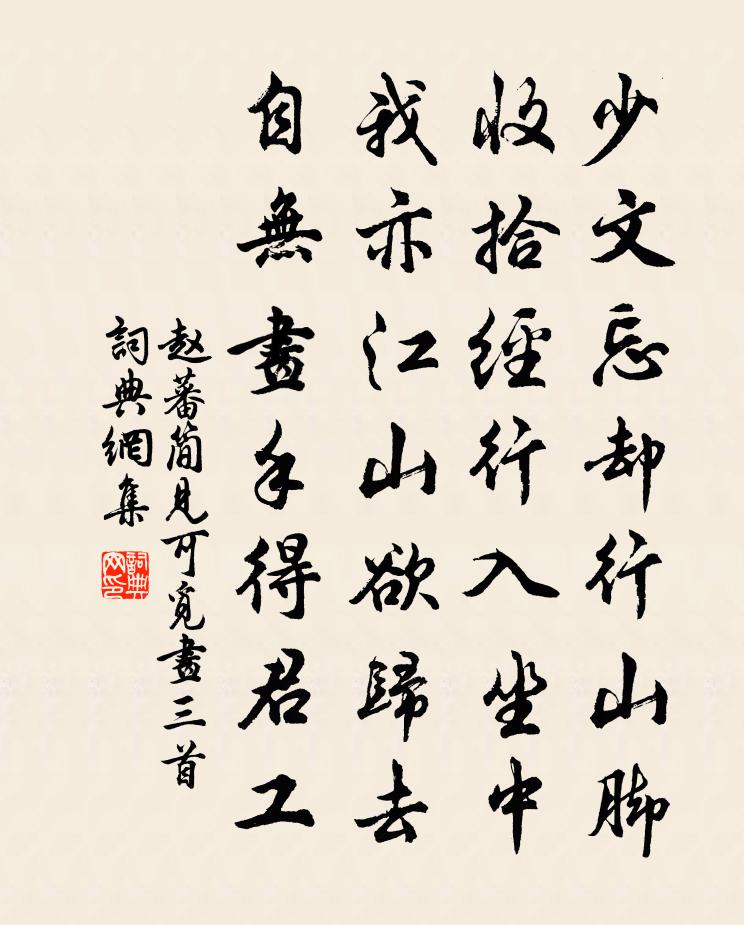 少文忘却行山脚
收拾經行入坐中
我亦江山欲歸去
自無畫手得君工
赵蕃簡見可覓畫三首
詞典網集
詞典网印